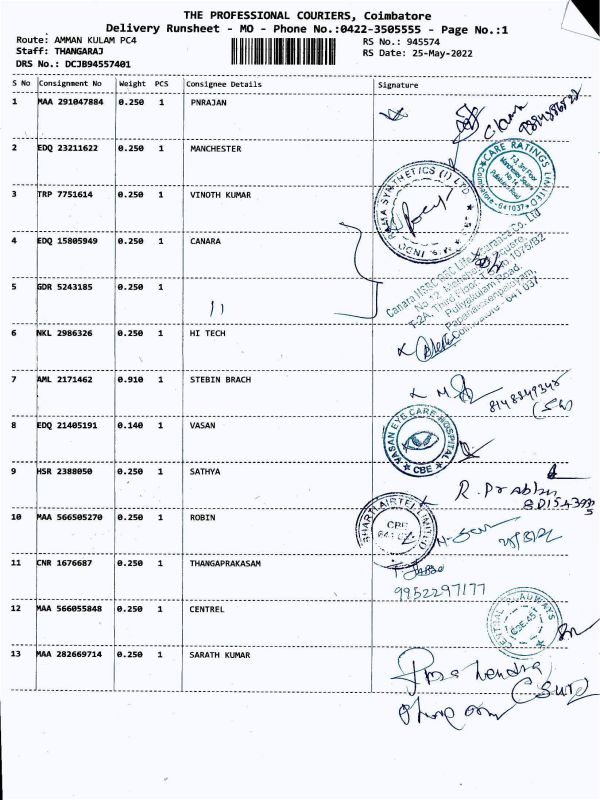 THE PROFESSIONAL COURIERS, Coimbatore
Delivery Runsheet - MO - Phone No.:0422-3505555 - Page No.:1
Route: AMMAN KULAM PC4
Staff: THANGARAJ
DRS No.: DCJB94557401
RS No.: 945574
RS Date: 25-May-2022
S No Consignment No Weight PCS Consignee Details Signature
1 MAA 291047884 0.250 1 PNRAJAN
2 EDQ 23211622 0.250 1 MANCHESTER
CARE RATINGS LIMITED
T-3, 3rd Floor
Manchester Square
Puliakulam Road
Coimbatore - 641037
3 TRP 7751614 0.250 1 VINOTH KUMAR
M/s. INDO RAMA SYNTHETICS (I) LTD
4 EDQ 15805949 0.250 1 CANARA
Canara HSBC OBC Life Insurance Co. Ltd
No 12, Manchester Square
T-2A, Third Floor, 1075/B2
Puliyakulam Road,
Pappanaickenpalayam,
Coimbatore - 641 037
5 GDR 5243185 0.250 1 11
6 NKL 2986326 0.250 1 HI TECH
7 AML 2171462 0.910 1 STEBIN BRACH
8 EDQ 21405191 0.140 1 VASAN
VASAN EYE CARE HOSPITAL
CBE
9 HSR 2388050 0.250 1 SATHYA
R. Prabhu
10 MAA 566505270 0.250 1 ROBIN
BHARTI AIRTEL LIMITED
CBE
11 CNR 1676687 0.250 1 THANGAPRAKASAM
9952297177
12 MAA 566055848 0.250 1 CENTREL
CENTRAL ROADWAYS
CBE-45
13 MAA 282669714 0.250 1 SARATH KUMAR